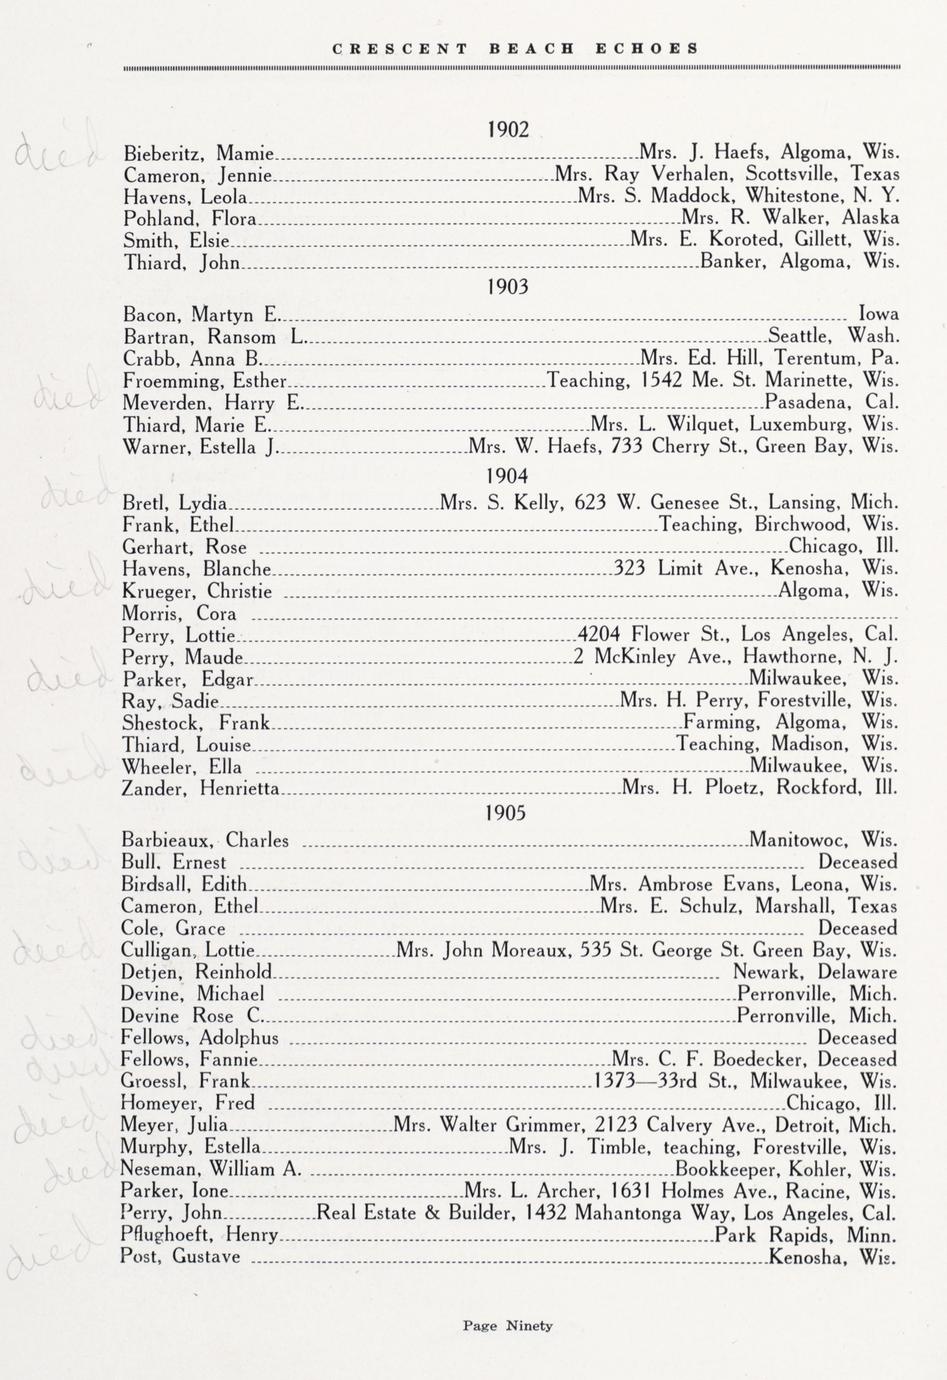 CRESCENT BEACH ECHOES
1902
died
Bieberitz, Mamie Mrs. J. Haefs, Algoma, Wis.
Cameron, Jennie Mrs. Ray Verhalen, Scottsville, Texas
Havens, Leola Mrs. S. Maddock, Whitestone, N. Y.
Pohland, Flora Mrs. R. Walker, Alaska
Smith, Elsie Mrs. E. Koroted, Gillett, Wis.
Thiard, John Banker, Algoma, Wis.
1903
Bacon, Martyn E. Iowa
Bartran, Ransom L. Seattle, Wash.
Crabb, Anna B. Mrs. Ed. Hill, Terentum, Pa.
Froemming, Esther Teaching, 1542 Me. St. Marinette, Wis.
died
Meverden, Harry E. Pasadena, Cal.
Thiard, Marie E. Mrs. L. Wilquet, Luxemburg, Wis.
Warner, Estella J. Mrs. W. Haefs, 733 Cherry St., Green Bay, Wis.
1904
died
Bretl, Lydia Mrs. S. Kelly, 623 W. Genesee St., Lansing, Mich.
Frank, Ethel Teaching, Birchwood, Wis.
Gerhart, Rose Chicago, Ill.
Havens, Blanche 323 Limit Ave., Kenosha, Wis.
died
Krueger, Christie Algoma, Wis.
Morris, Cora
Perry, Lottie 4204 Flower St., Los Angeles, Cal.
Perry, Maude 2 McKinley Ave., Hawthorne, N. J.
died
Parker, Edgar Milwaukee, Wis.
Ray, Sadie Mrs. H. Perry, Forestville, Wis.
Shestock, Frank Farming, Algoma, Wis.
Thiard, Louise Teaching, Madison, Wis.
died
Wheeler, Ella Milwaukee, Wis.
Zander, Henrietta Mrs. H. Ploetz, Rockford, Ill.
1905
Barbieaux, Charles Manitowoc, Wis.
died
Bull. Ernest Deceased
Birdsall, Edith Mrs. Ambrose Evans, Leona, Wis.
Cameron, Ethel Mrs. E. Schulz, Marshall, Texas
Cole, Grace Deceased
died
Culligan, Lottie Mrs. John Moreaux, 535 St. George St. Green Bay, Wis.
Detjen, Reinhold Newark, Delaware
Devine, Michael Perronville, Mich.
Devine Rose C. Perronville, Mich.
died
Fellows, Adolphus Deceased
died
Fellows, Fannie Mrs. C. F. Boedecker, Deceased
Groessl, Frank 1373—33rd St., Milwaukee, Wis.
Homeyer, Fred Chicago, Ill.
died
Meyer, Julia Mrs. Walter Grimmer, 2123 Calvery Ave., Detroit, Mich.
Murphy, Estella Mrs. J. Timble, teaching, Forestville, Wis.
died
Neseman, William A. Bookkeeper, Kohler, Wis.
Parker, Ione Mrs. L. Archer, 1631 Holmes Ave., Racine, Wis.
Perry, John Real Estate & Builder, 1432 Mahantonga Way, Los Angeles, Cal.
Pflughoeft, Henry Park Rapids, Minn.
died
Post, Gustave Kenosha, Wis.
Page Ninety